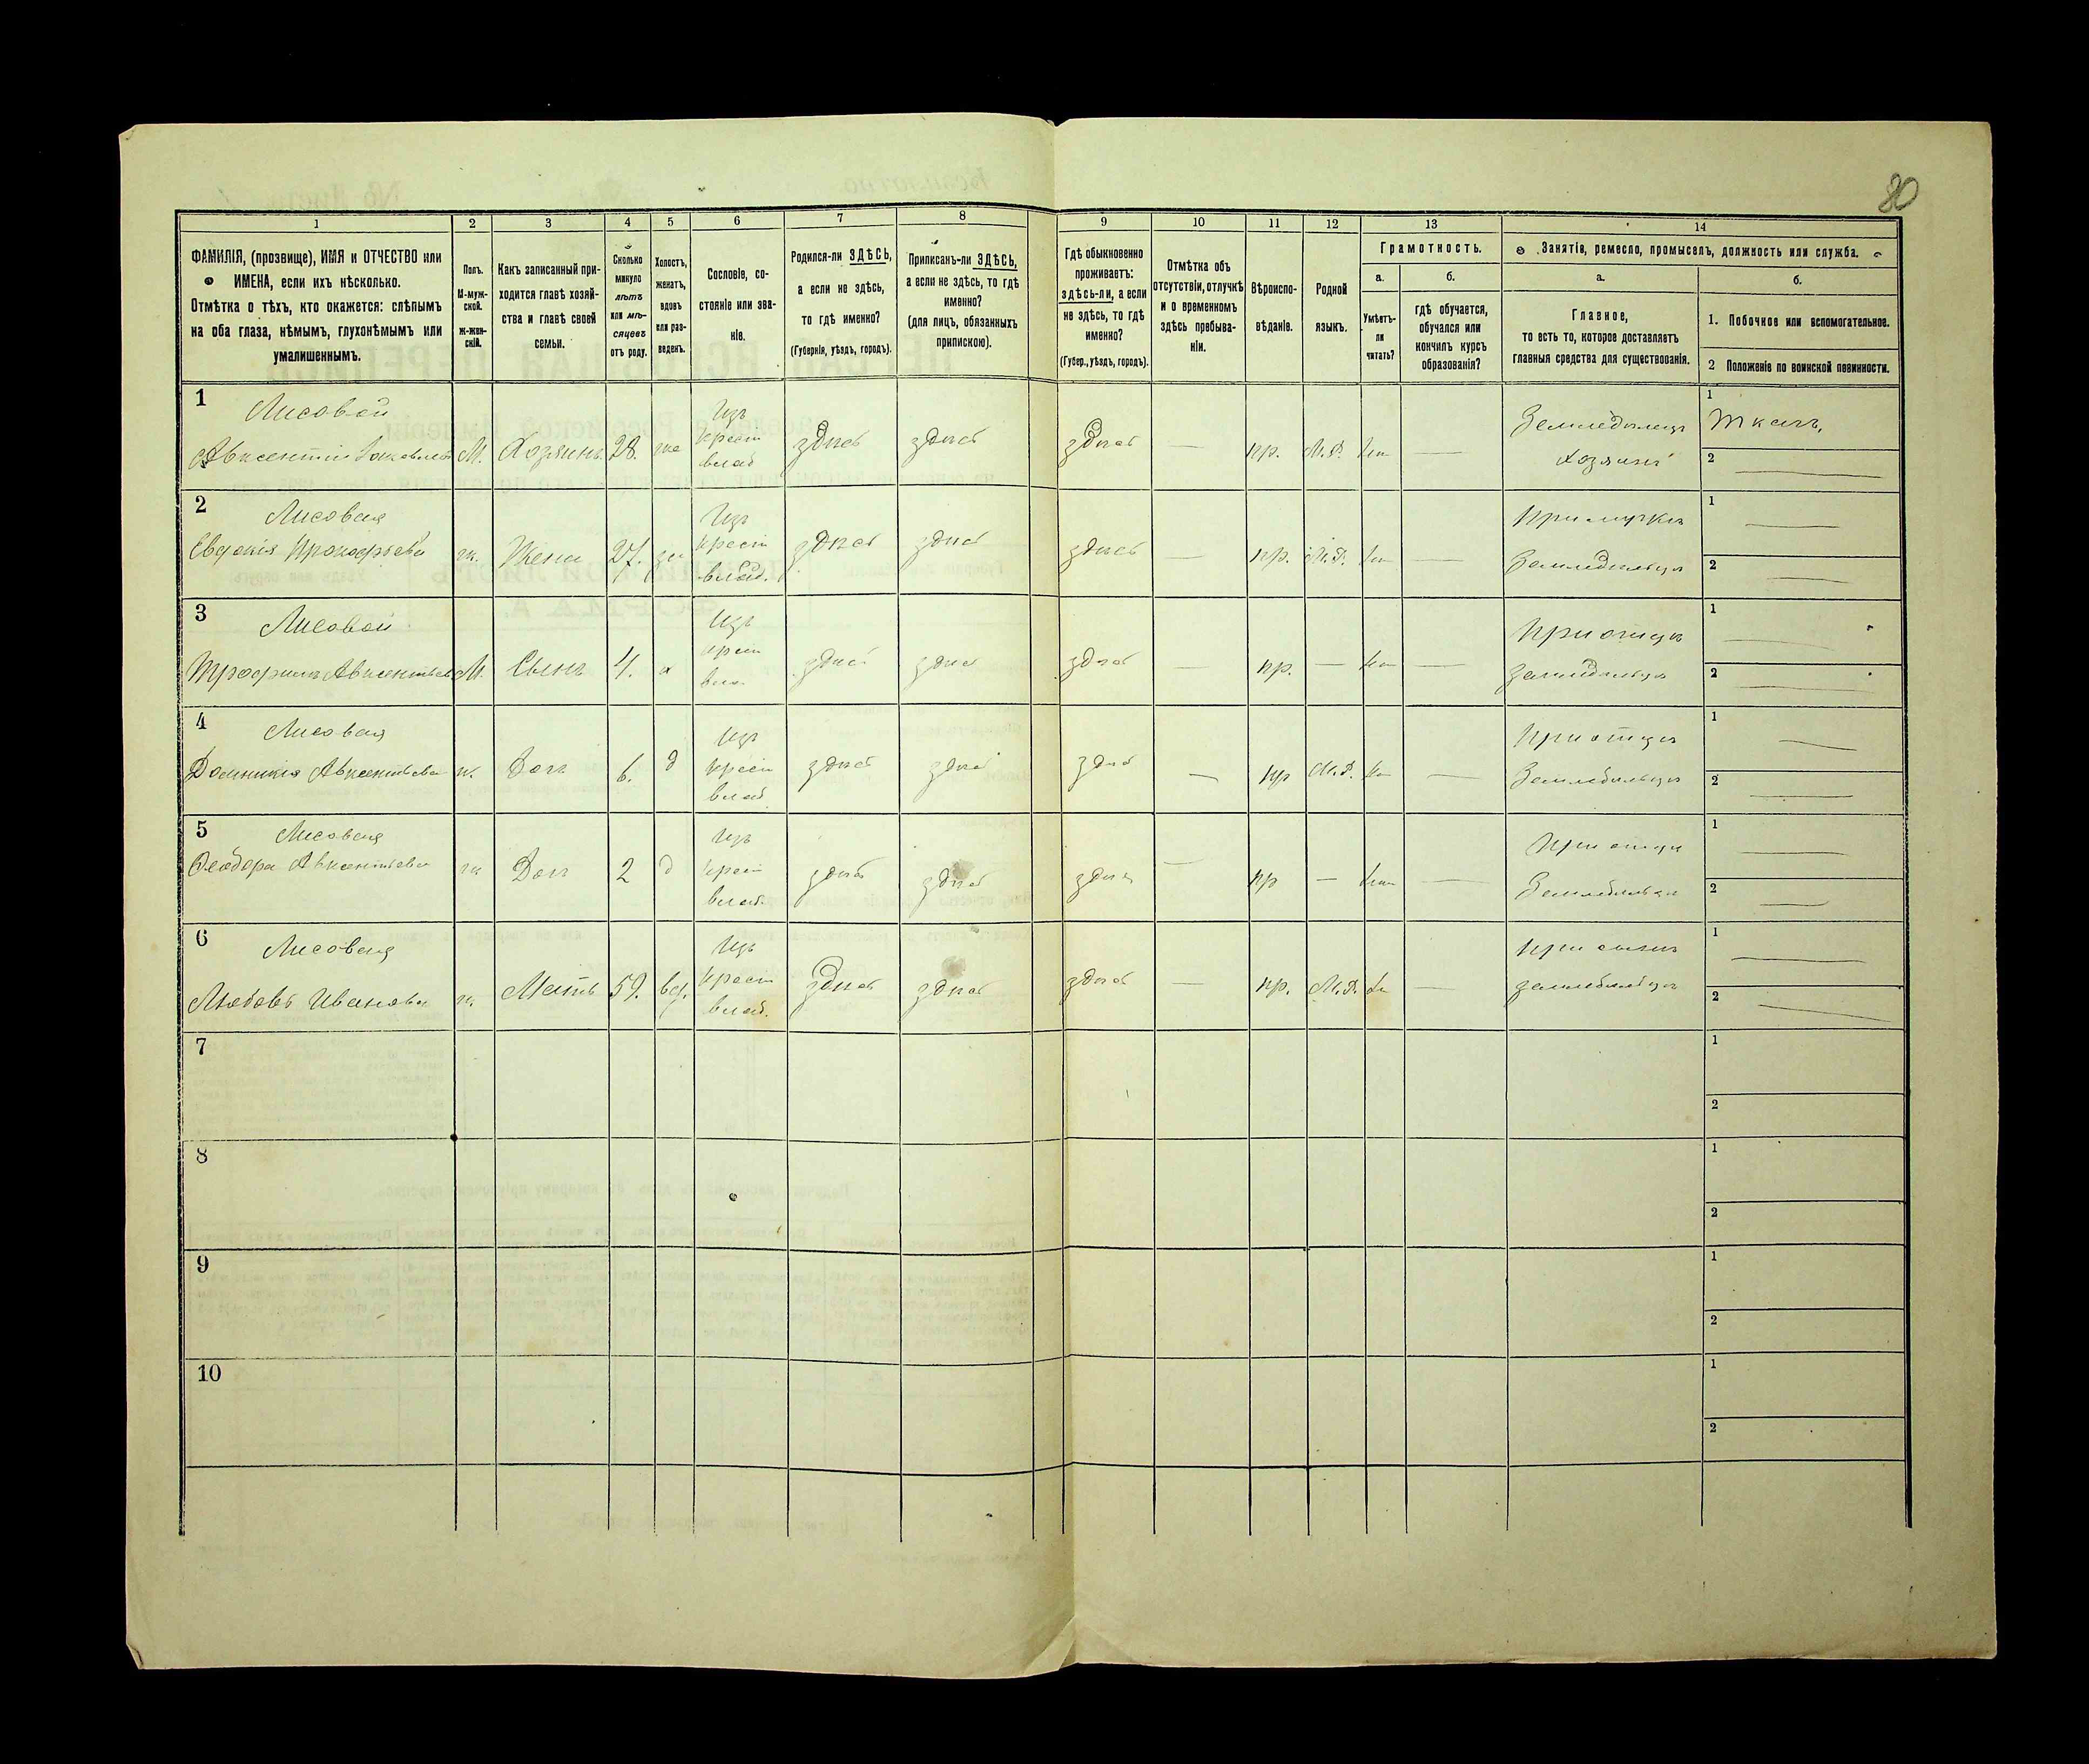 80
1 2 3 4 5 6 7 8 9 10 11 12 13 14
ФАМИЛІЯ, (прозвище), ИМЯ и ОТЧЕСТВО или
ИМЕНА, если ихъ нѣсколько.
Отмѣтка о тѣхъ, кто окажется: слѣпымъ
на оба глаза, нѣмымъ, глухонѣмымъ или
умалишеннымъ.
Полъ.
М-муж-
ской.
ж-жен-
скій.
Какъ записанный при-
ходится главѣ хозяй-
ства и главѣ своей
семьи.
Сколько
минуло
лѣтъ
или мѣ-
сяцевъ
отъ роду.
Холостъ,
женатъ,
вдовъ
или раз-
веденъ.
Сословіе, со-
стояніе или зва-
ніе.
Родился-ли ЗДѢСЬ,
а если не здѣсь,
то гдѣ именно?
(Губернія, уѣздъ, городъ).
Приписанъ-ли ЗДѢСЬ,
а если не здѣсь, то гдѣ
именно?
(для лицъ, обязанныхъ
припискою).
Гдѣ обыкновенно
проживаетъ:
здѣсь-ли, а если
не здѣсь, то гдѣ
именно?
(Губер., уѣздъ, городъ).
Отмѣтка объ
отсутствіи, отлучкѣ
и о временномъ
здѣсь пребыва-
ніи.
Вѣроиспо-
вѣданіе.
Родной
языкъ.
Грамотность.
а.
Умѣетъ-
ли
читать?
б.
гдѣ обучается,
обучался или
кончилъ курсъ
образованія?
Занятіе, ремесло, промыселъ, должность или служба.
а.
Главное,
то есть то, которое доставляетъ
главныя средства для существованія.
б.
1. Побочное или вспомогательное.
2 Положеніе по воинской повинности.
1 Лисовой
Авксентій Яковлевъ М. Хозяинъ 28. же Изъ крест влад здѣсь здѣсь здѣсь — пр. М.Р. — Земледѣлецъ хозяинъ 1 Ткачъ, 2 —
2 Лисовая
Евдокія Прокофьева ж. Жена 27. за Изъ крест влад. здѣсь здѣсь здѣсь — пр. М.Р. — При мужѣ Земледѣльцѣ 1 — 2 —
3 Лисовой
Трофимъ Авксентьевъ М. Сынъ 4. х Изъ крест здѣсь здѣсь здѣсь — пр. — — При отцѣ земледѣльцѣ 1 — 2 —
4 Лисовая
Домникія Авксентьева ж. Доч 6. д Изъ крест влад здѣсь здѣсь здѣсь — пр М.Р. — При отцѣ Земледѣльцѣ 1 — 2 —
5 Лисовая
Феодора Авксентьева ж Доч 2 д Изъ крест влад. здѣсь здѣсь здѣсь — пр — — При отцѣ Земледѣльцѣ 1 — 2 —
6 Лисовая
Любовь Иванова ж. Мать 59. вд. Изъ крест влад. здѣсь здѣсь здѣсь — пр. М.Р. — При сынѣ земледѣльцѣ 1 — 2 —
7 1 2
8 1 2
9 1 2
10 1 2